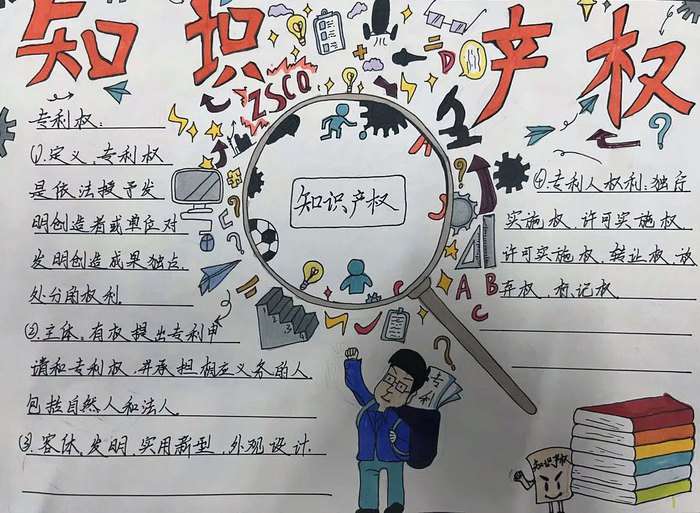 知识产权
ZSCQ
专利权：
①.定义、专利权
是依法授予发
明创造者或单位对
发明创造成果独占、
处分的权利.
②.主体、有权提出专利申
请和专利权、并承担相应义务的人
包括自然人和法人.
③.客体、发明、实用新型、外观设计.
知识产权
D
A B
C
专利
④.专利人权利、独占
实施权、许可实施权、
许可实施权、转让权、放
弃权、标记权
知识产权